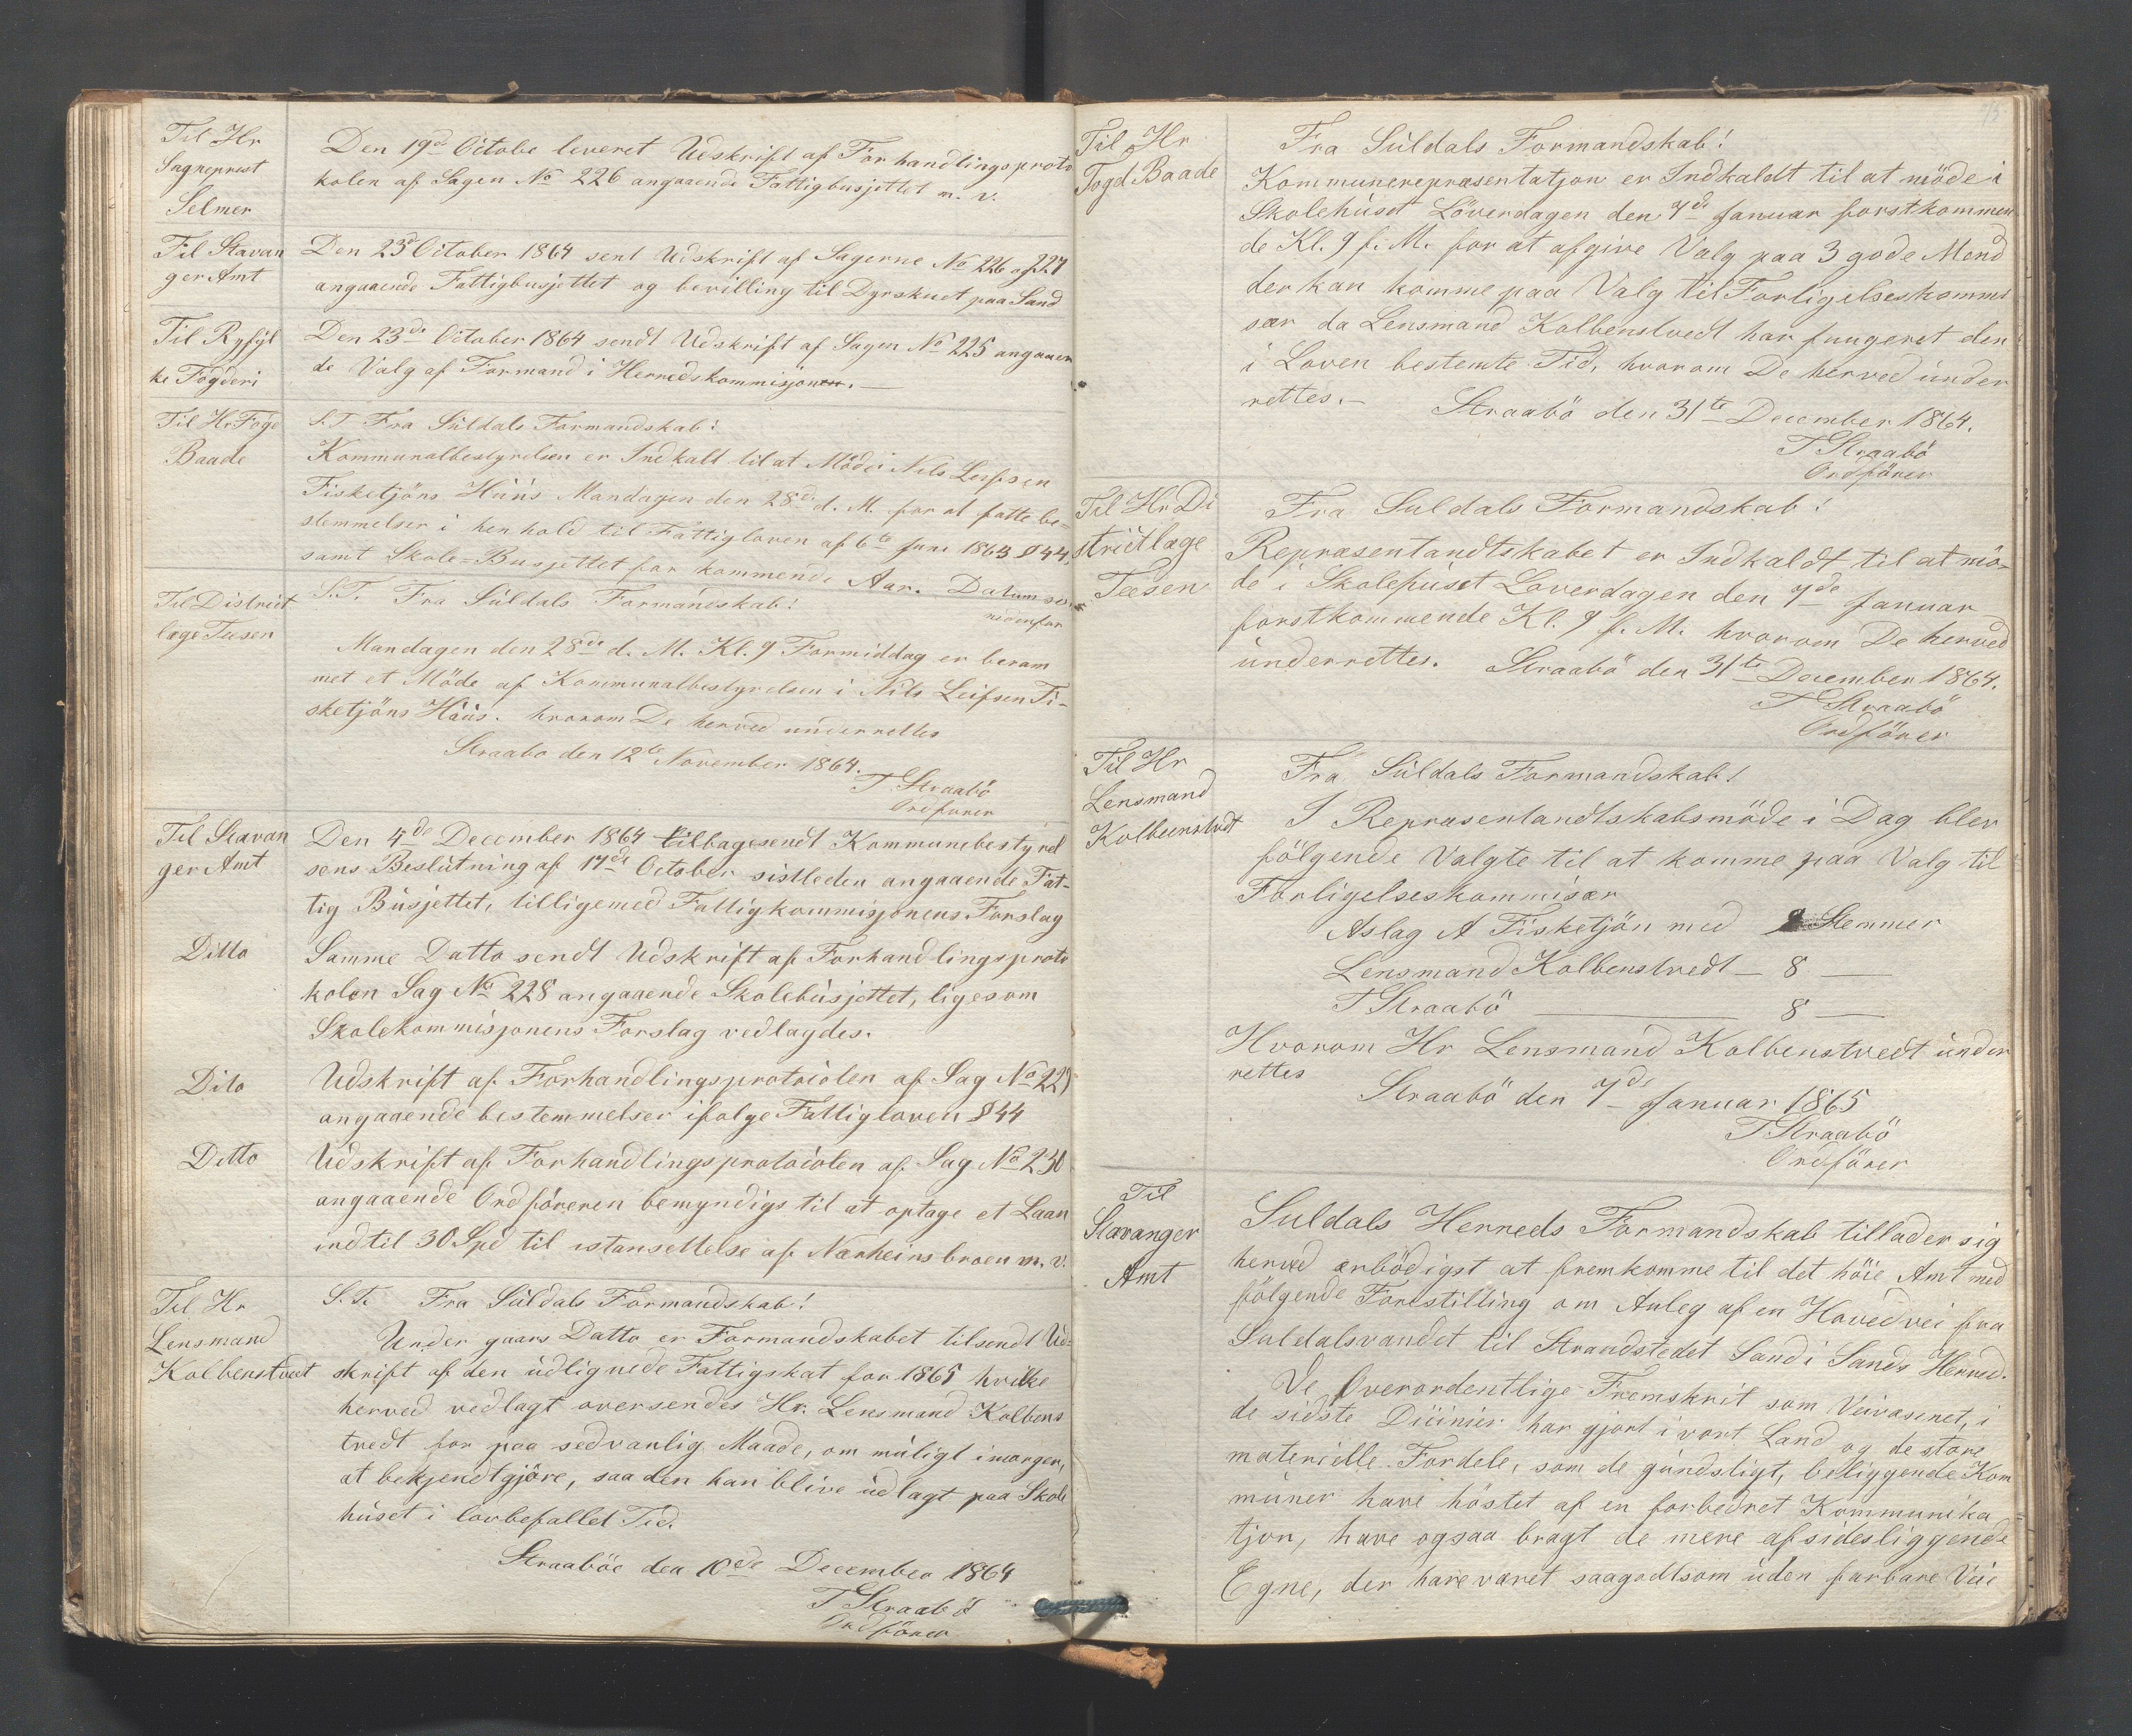 Til Hr
Sogneprest
Selmer
Den 19de Octobe leveret Udskrift af Forhandlingsproto
kolen af Sagen No 226 angaaende Fattigbusjettet m. v.
Til Stavan
ger Amt
Den 23de October 1864 sent Udskrift af Sagerne No 226 og 227
angaaende Fattigbusjettet og bevilling til Dyrskuet paa Sand
Til Ryfyl
ke Fogderi
Den 23de October 1864 sendt Udskrift af Sagen No 225 angaaen
de Valg af Formand i Herredskommisjonen.
Til Hr Foge
Baade
S.T. Fra Suldals Formandskab!
Kommunalbestyrelsen er Indkalt til at Möde i Nils Leifsen
Fisketjöns Huus Mandagen den 28de d. M. for at fatte be-
stemmelser i henhold til Fattigloven af 6te Juni 1863 § 44,
samt Skole-Busjettet for kommende Aar. Datum se
nedenfor
Til District
læge Tiesen
S.T. Fra Suldals Formandskab!
Mandagen den 28de d. M. Kl. 9 Formiddag er beram
met et Möde af Kommunalbestyrelsen i Nils Leifsen Fi-
sketjöns Huus. hvorom De herved underrettes
Straabö den 12te November 1864.
T Straabö
Ordförer
Til Stavan
ger Amt
Den 4de December 1864 tilbagesendt Kommunebestyrel
sens Beslutning af 17de October sistleden angaaende Fat-
tig Busjettet, tilligemed Fattigkommisjonens Forslag
Ditto
Samme Datto sendt Udskrift af Forhandlingsproto
kolen Sag No 228 angaaende Skolebusjettet, ligesom
Skolekommisjonens Forslag vedlagdes.
Dito
Udskrift af Forhandlingsprotocolen af Sag No 229
angaaende bestemmelser ifolge Fattigloven § 44
Ditto
Udskrift af Forhandlingsprotocolen af Sag No 230
angaaende Ordföreren bemyndigs til at optage et Laan
indtil 30 Spd til istansettelse af Nærheims broen m. v.
Til Hr
Lensmand
Kolbenstvedt
S.T. Fra Suldals Formandskab!
Under gaars Datto er Formandskabet tilsendt Ud-
skrift af den udlignede Fattigskat for 1865 hvilke
herved vedlagt oversendes Hr. Lensmand Kolbens
tvedt for paa sedvanlig Maade, om muligt imorgen,
at bekjendtgjöre, saa den kan blive udlagt paa Skole
huset i lovbefallet Tid.
Straaböe den 10de December 1864
T Straabö
Ordförer
Til Hr
Fogd Baade
Fra Suldals Formandskab!
Kommunerepræsentatjon er Indkaldt til at möde i
Skolehuset Löverdagen den 7de Januar forstkommen
de Kl. 9 f. M. for at afgive Valg paa 3 gode Mend
der kan komme paa Valg til Forligelseskommi
sær da Lensmand Kolbenstvedt har fungeret den
i Loven bestemte Tid, hvorom De herved under
rettes.
Straabö den 31te December 1864.
T Straabö
Ordförer
Til Hr Di
strictlæge
Tiesen
Fra Suldals Formandskab!
Repræsentandtskabet er Indkaldt til at mö-
de i Skolehuset Loverdagen den 7de Januar
forstkommende Kl. 9 f. M. hvorom De herved
underrettes. Straabö den 31te December 1864.
T Straabö
Ordförer
Til Hr
Lensmand
Kolbenstvedt
Fra Suldals Formandskab!
I Repræsentandtskabsmöde i Dag blev
fölgende Valgte til at komme paa Valg til
Forligelseskommisær
Aslag A Fisketjön med Stemmer
Lensmand Kolbenstvedt — 8 —
T Straabö — 8 —
Hvorom Hr Lensmand Kolbenstvedt under
rettes
Straabö den 7de Januar 1865
T Straabö
Ordförer
Til
Stavanger
Amt
Suldals Herreds Formandskab tillader sig
herved ærbödigst at fremkomme til det höie Amt med
fölgende Forestilling om Anleg af en Hovedvei fra
Suldalsvandet til Strandstedet Sand i Sands Herred.
De Overordentlige Fremskrit som Veivæsenet, i
de sidste Diicinier har gjort i vort Land og de store
materielle Fordele, som de gundsligt, beliggende Kom
muner have höstet af en forbedret Kommunika
tjon, have ogsaa bragt de mere afsidesliggende
Egne, der have været saagodtsom uden farbare Veie